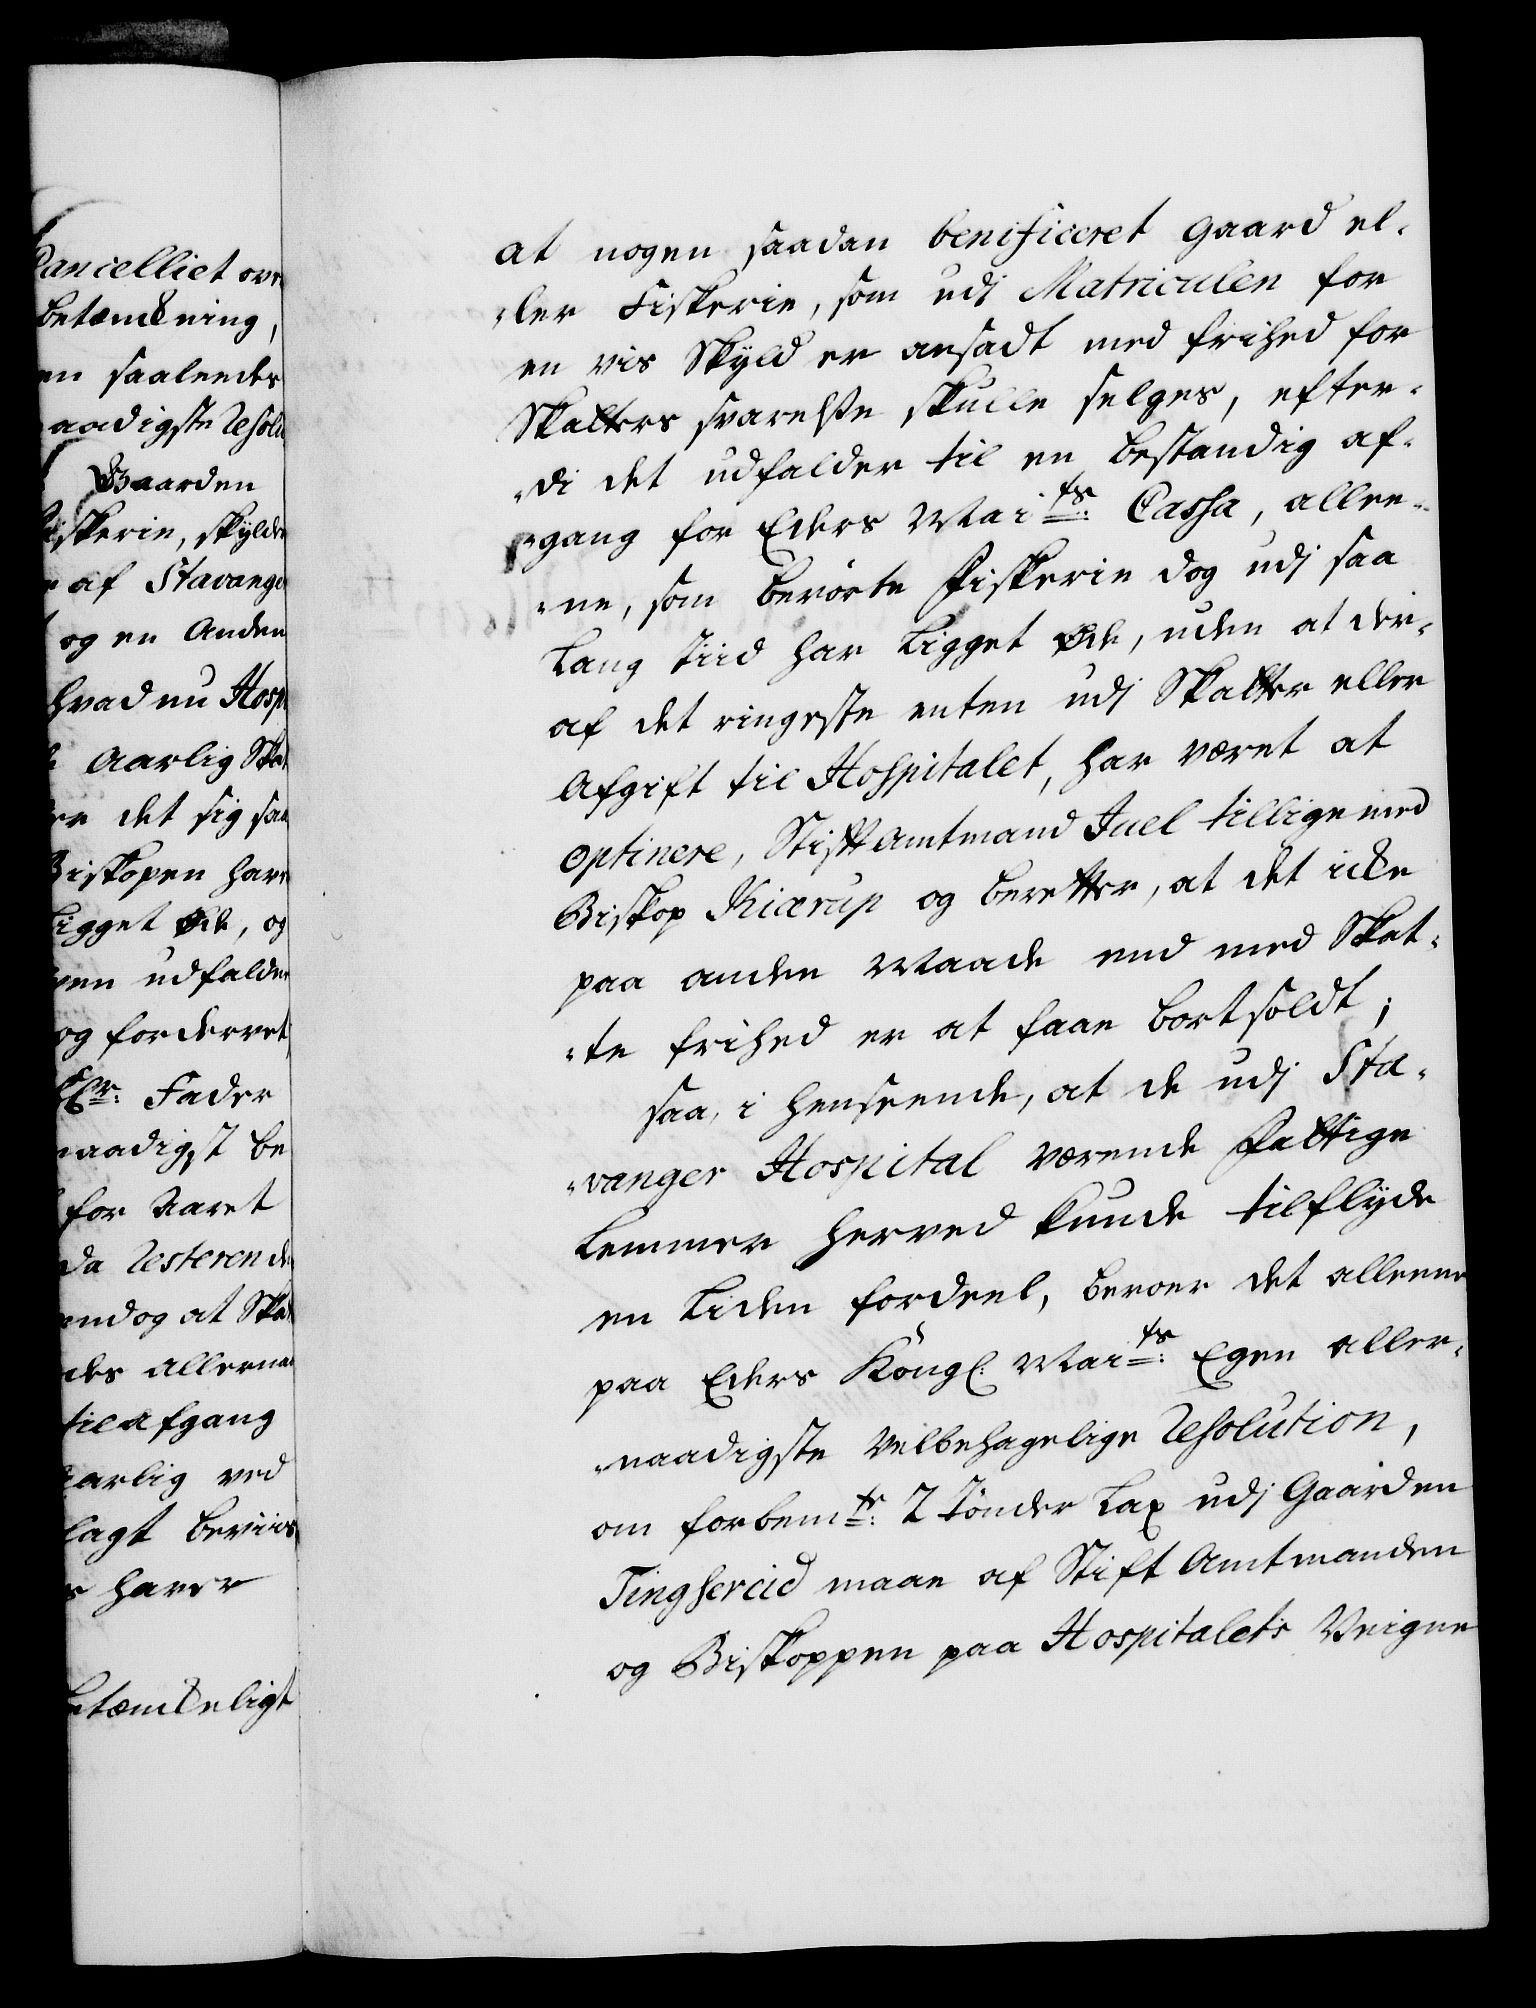 Cancelliet ove
betænckning,
en saaleedes
aadigste Resolu
Gaarden
Fiskerie, skylde
af Stavanger
og en Anden
hvad nu Hosp
Aarlig Skat
er det sig saa
Biskopen have
Ligget Øde, og
en udfalder
og fordervet,
Hr: Fader
naadigst be
for Aaret
da Resterende
endog at Skat
des allerna
til afgang
aarlig ved
lagt beviis
haver
betænckeligt
at nogen saadan benificeret gaard el-
-ler Fiskerie, som udj Matriculen for
en vis Skyld er ansadt med frihed for
Skatters svarelse skulle selges, efter-
-di det udfalder til en bestandig af-
-gang for Eders Maits: Cassa, allee-
-ne, som berörte Fiskerie dog udj saa
Lang Tiid har Ligget Øde, uden at der-
af det ringeste enten udj Skatter eller
Afgift til Hospitalet, har været at
optinere, Stiftamtmand Juel tillige med
Biskop Kiærup og beretter, at det icke
paa anden Maade end med Skat-
-te frihed er at faae bortsoldt;
saa, i henseende, at de udj Sta-
-vanger Hospital værende Fattige
Lemmer herved kunde tilflyde
en Liden fordeel, beroer det alleene
paa Eders Kongl: Maits: Egen aller-
-naadigste Velbehagelige Resolution,
om forbemte: 2 Tønder Lax udj Gaarden
Tinghereid maae af Stift Amtmanden
og Biskoppen paa Hospitalets Veigne